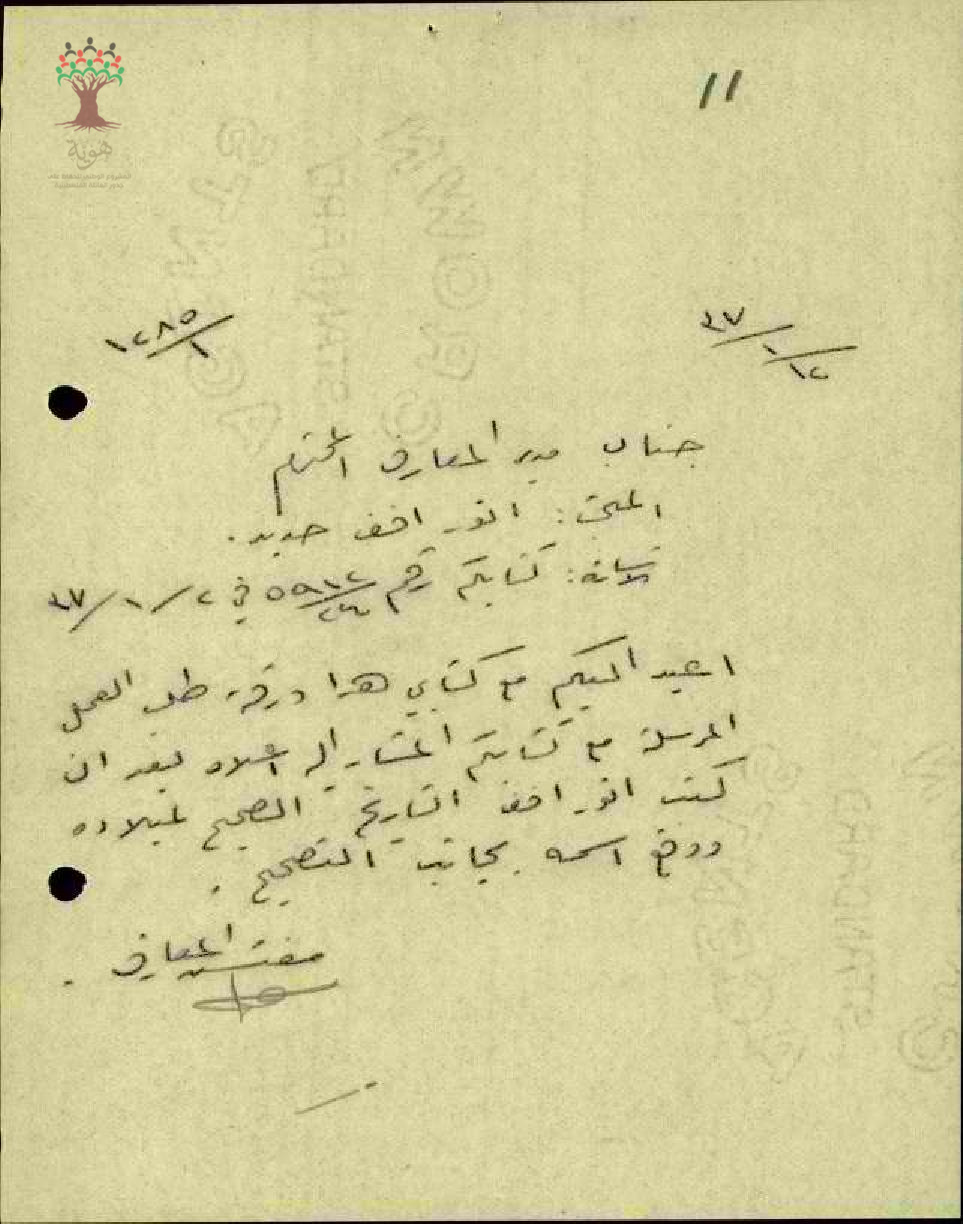 11
هوية
١٢٨٥/١
٣٧/١/١٢
جناب مدير المعارف المحترم
المبحث: انور افندي حديد.
الاشارة: كتابكم رقم في ٢/١/٣٧
اعيد اليكم مع كتابي هذا ورقة طلب العمل
المرسلة مع كتابكم المشار اليه اعلاه بعد ان
كتب انور افندي التاريخ الصحيح لميلاده
ووقع اسمه بجانب التصحيح.
مفتش المعارف.